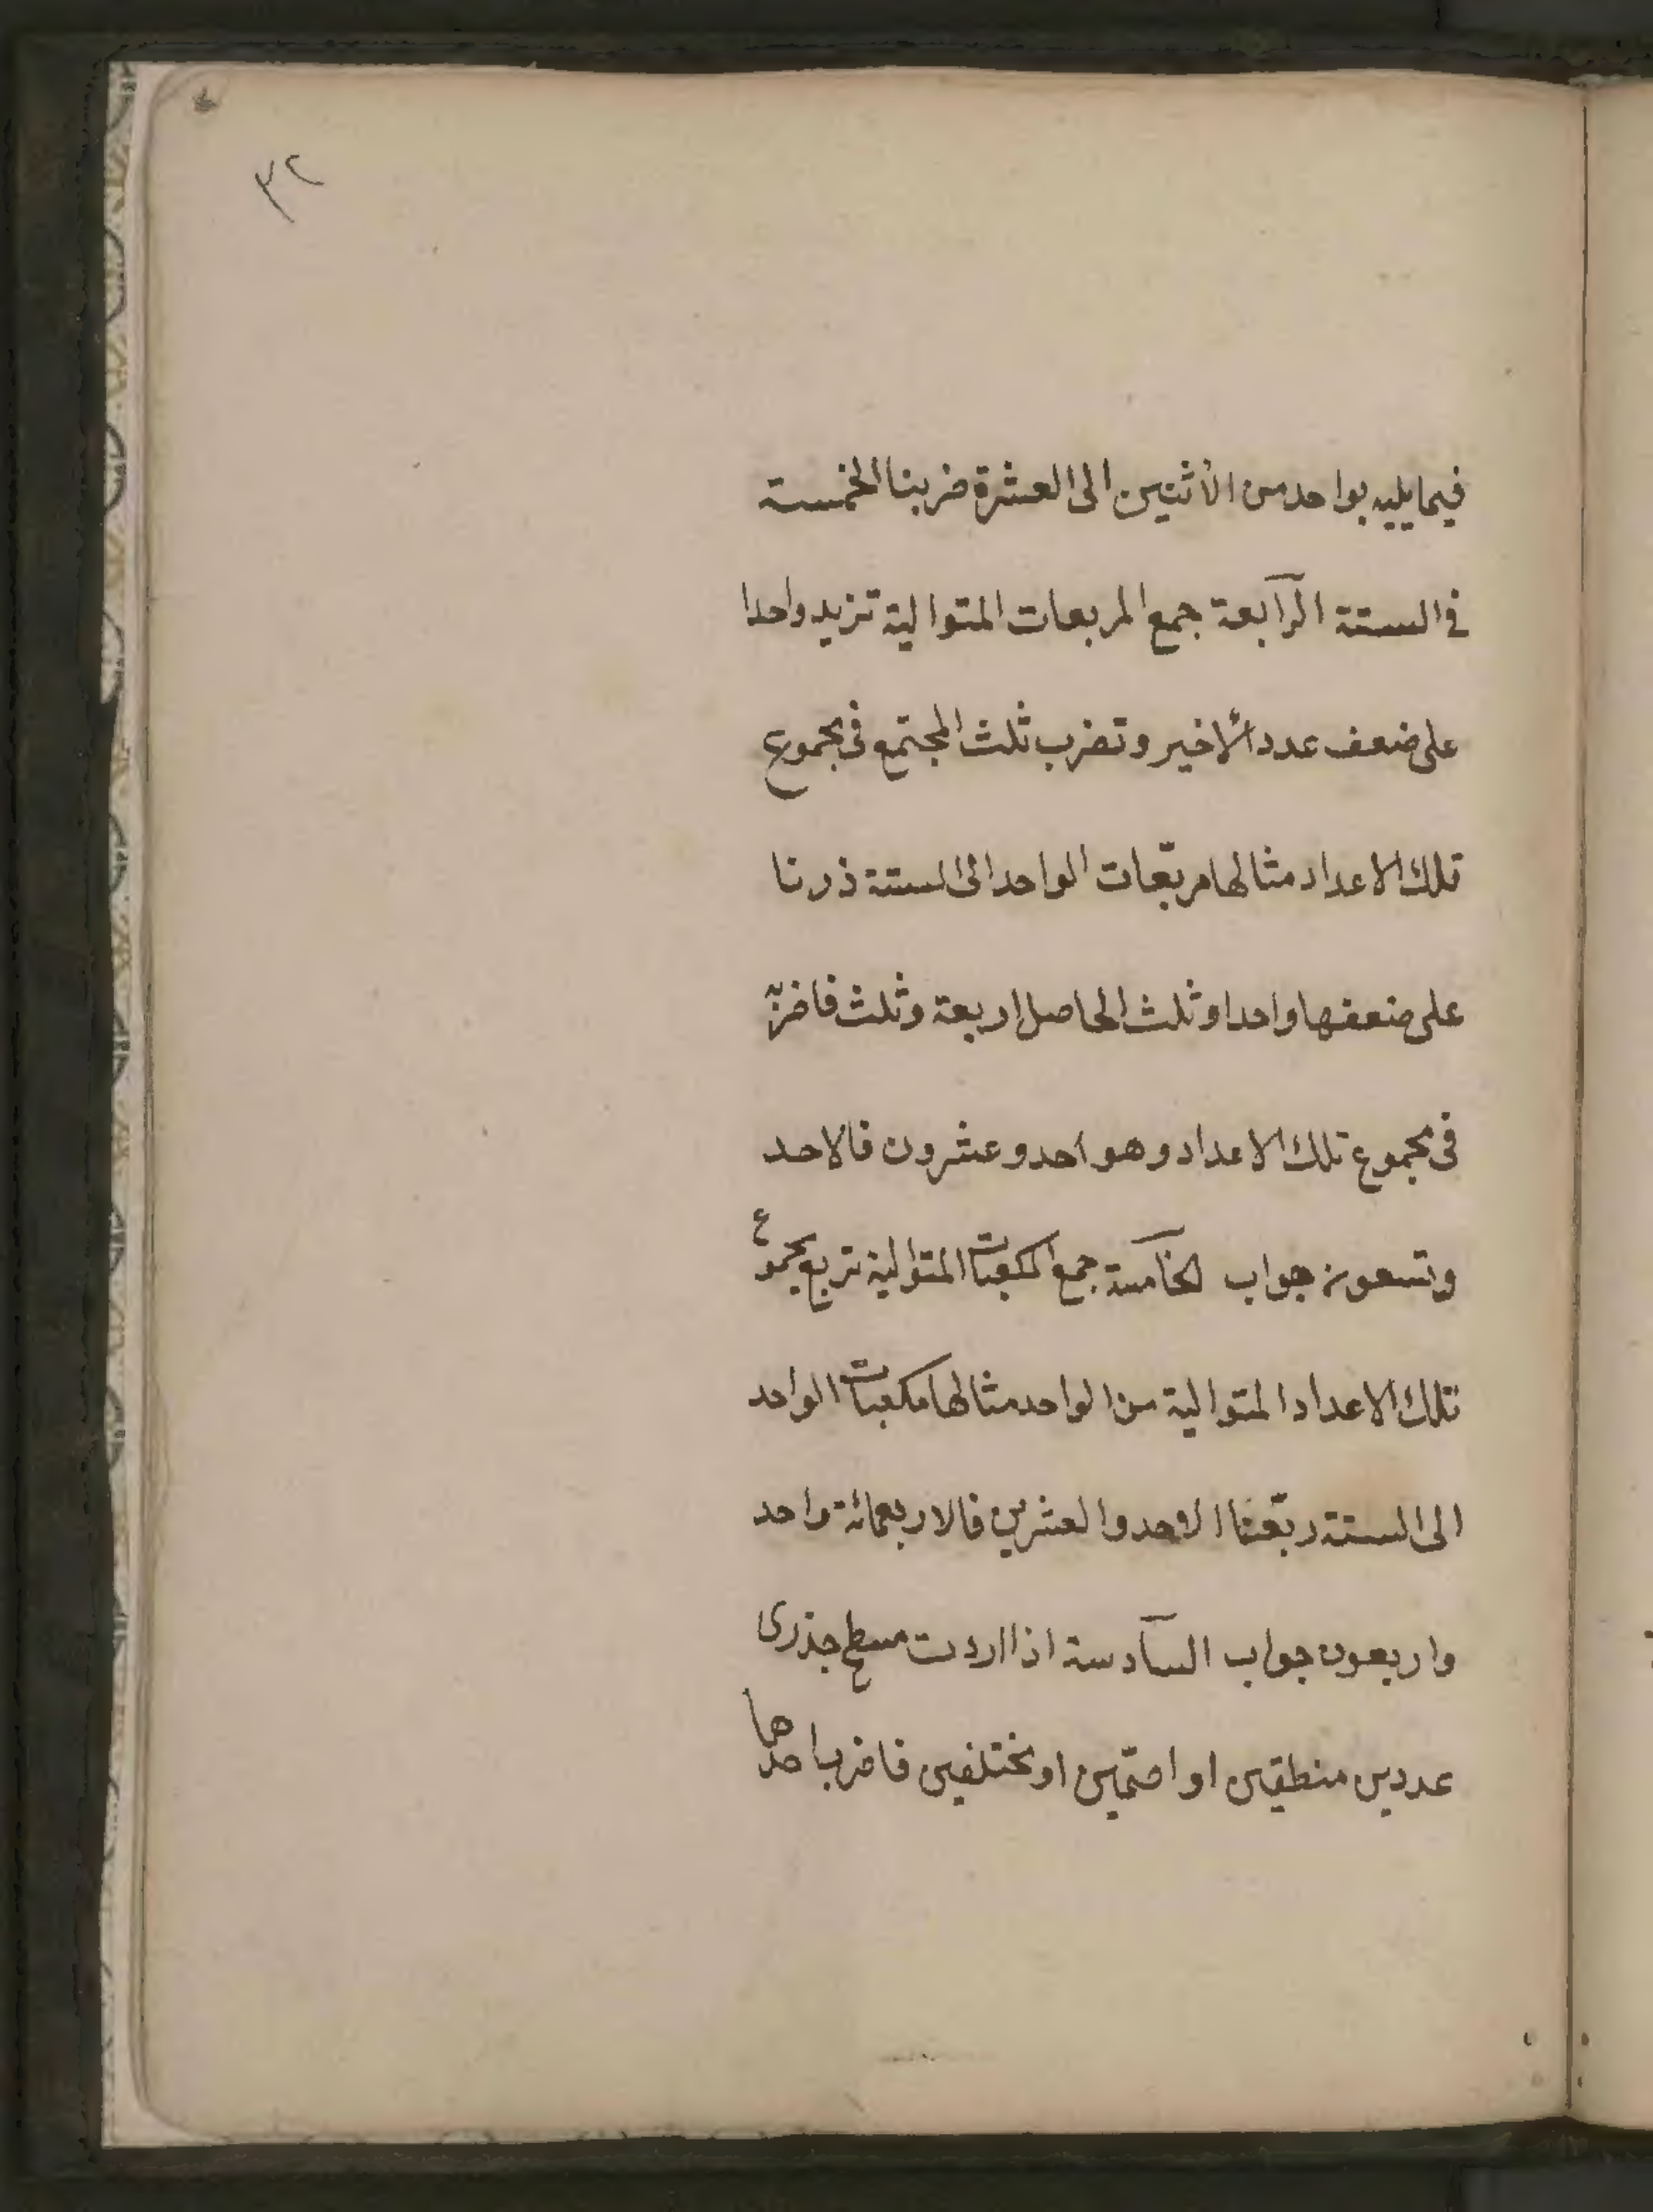 ٣٢
فيما يليه بواحد من الأثنين الى العشرة ضربنا الخمسة
في الستة الرابعة جمع المربعات المتوالية تزيد واحدا
على ضعف عدد الأخير و تضرب ثلث المجتمع فى مجموع
تلك الاعداد مثالها مربّعات الواحد الى الستة ذدنا
على ضعفها واحدا و ثلث الحاصل اربعة و ثلث فاضربه
فى مجموع تلك الاعداد و هو احد و عشرون فالاحد
و تسعون جواب الخامسة جمع المكعبات المتوالية تربع مجموع
تلك الاعداد المتوالية من الواحد مثالها مكعبات الواحد
الى الستة ربّعنا الاحد والعشرين فالاربعمائة واحد
واربعون جواب السادسة اذا اردت مسطح جذرى
عددين منطقين او اصمّين او مختلفين فاضرب احدهما